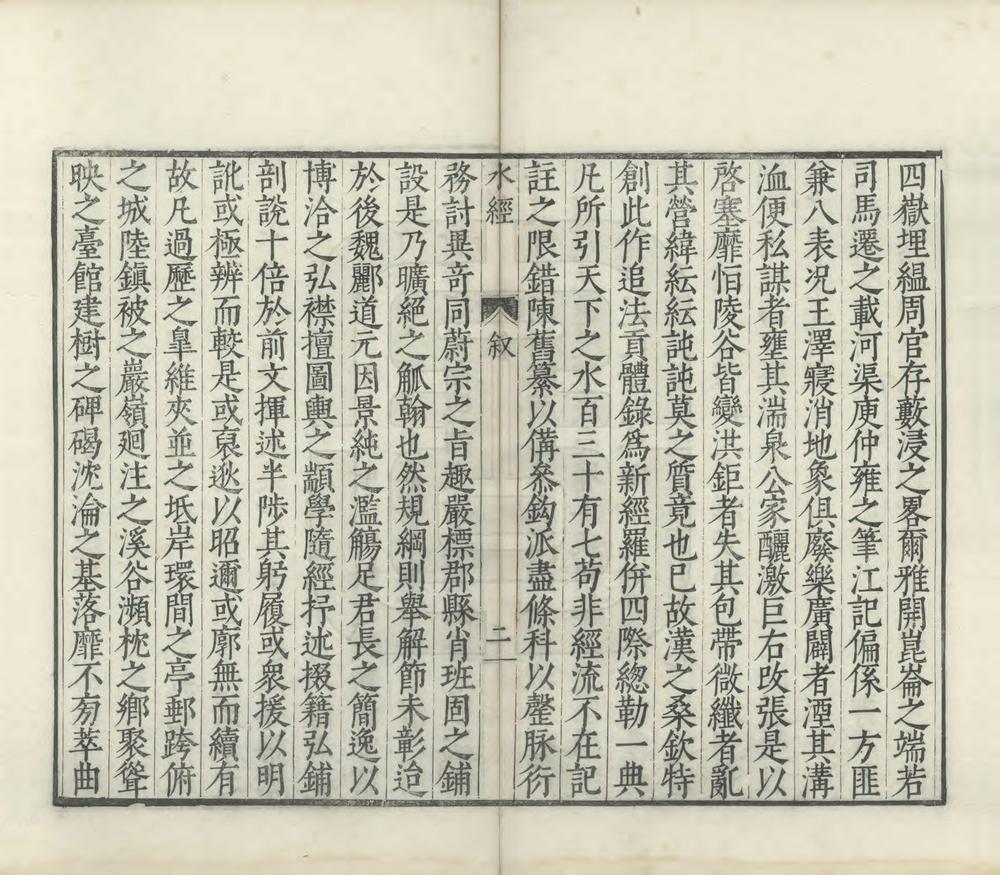 四嶽埋縕周官存藪浸之畧爾雅開崑崙之端若
司馬遷之載河渠庾仲雍之筆江記偏係一方匪
兼八表况王澤寢消地象俱廢樂廣闢者湮其溝
洫便私謀者壅其湍泉公家釃激巨右改張是以
啓塞靡怕陵谷皆變洪鉅者失其包帶微纖者亂
其營緯紜紜訰訰莫之質竟也已故漢之桑欽特
創此作追法貢體錄爲新經羅併四際總勒一典
凡所引天下之水百三十有七苟非經流不在記
註之限錯陳舊纂以備叅鈎派盡條科以䪠脉衍
水經 叙 二
務討異竒同蔚宗之旨趣嚴標郡縣肖班固之鋪
設是乃曠絕之觚翰也然規綱則舉解節未彰迨
於後魏酈道元因景純之濫觴足君長之簡逸以
博洽之弘襟擅圖輿之顓學隨經抒述掇籍弘鋪
剖說十倍於前文揮述半陟其躬履或衆援以明
訛或極辨而較是或裒逖以昭邇或廓無而續有
故凡過歷之臯維夾並之坻岸環間之亭郵跨俯
之城陸鎮被之巖嶺廻注之溪谷瀕枕之鄉聚聳
映之臺館建樹之碑碣沈淪之基落靡不旁萃曲